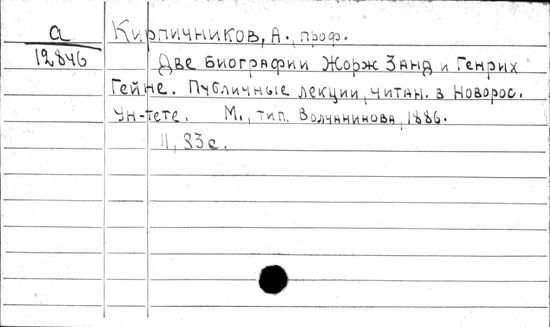 а Кирпичников, А., проф.
12846 Две биографии Жорж Занд и Генрих
Гейне. Публичные лекции, читан. в Новорос.
Ун-тете. М., тип. Волчанинова, 1886.
II, 83с.